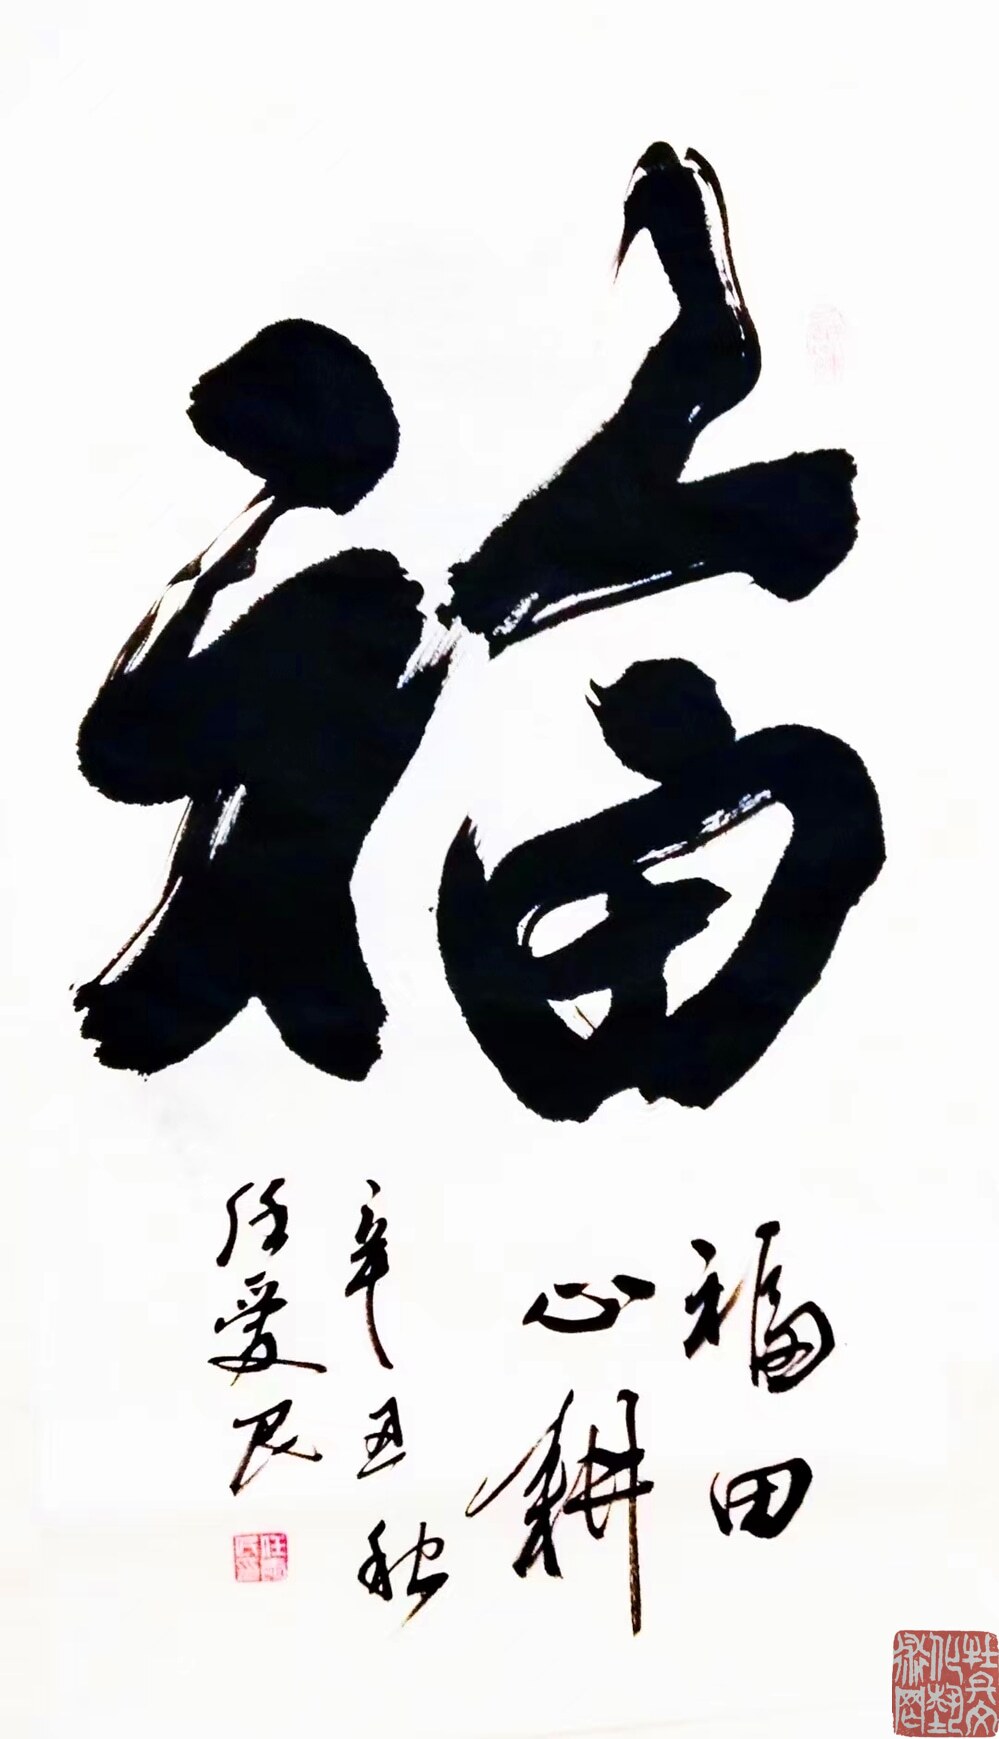 福
福田
心耕
辛丑秋
任愛民